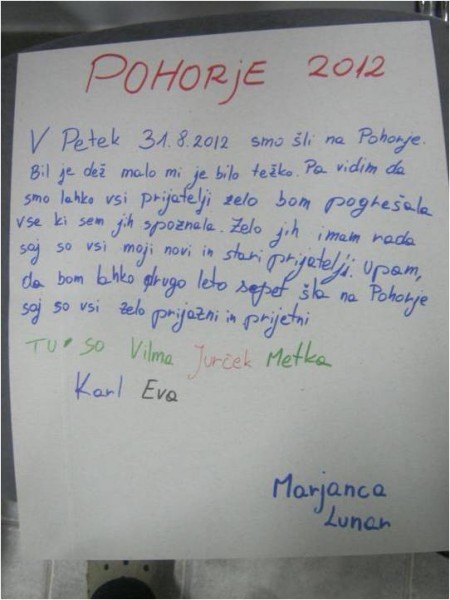 POHORJE 2012
V Petek 31.8.2012 smo šli na Pohorje.
Bil je dež malo mi je bilo težko. Pa vidim da
smo lahko vsi prijatelji zelo bom pogrešala
vse ki sem jih spoznala. Zelo jih imam rada
saj so vsi moji novi in stari prijatelji. Upam,
da bom lahko drugo leto sepet šla na Pohorje
saj so vsi zelo prijazni in prijetni
TU SO Vilma Jurček Metka
Karl Eva
Marjanca
Lunar